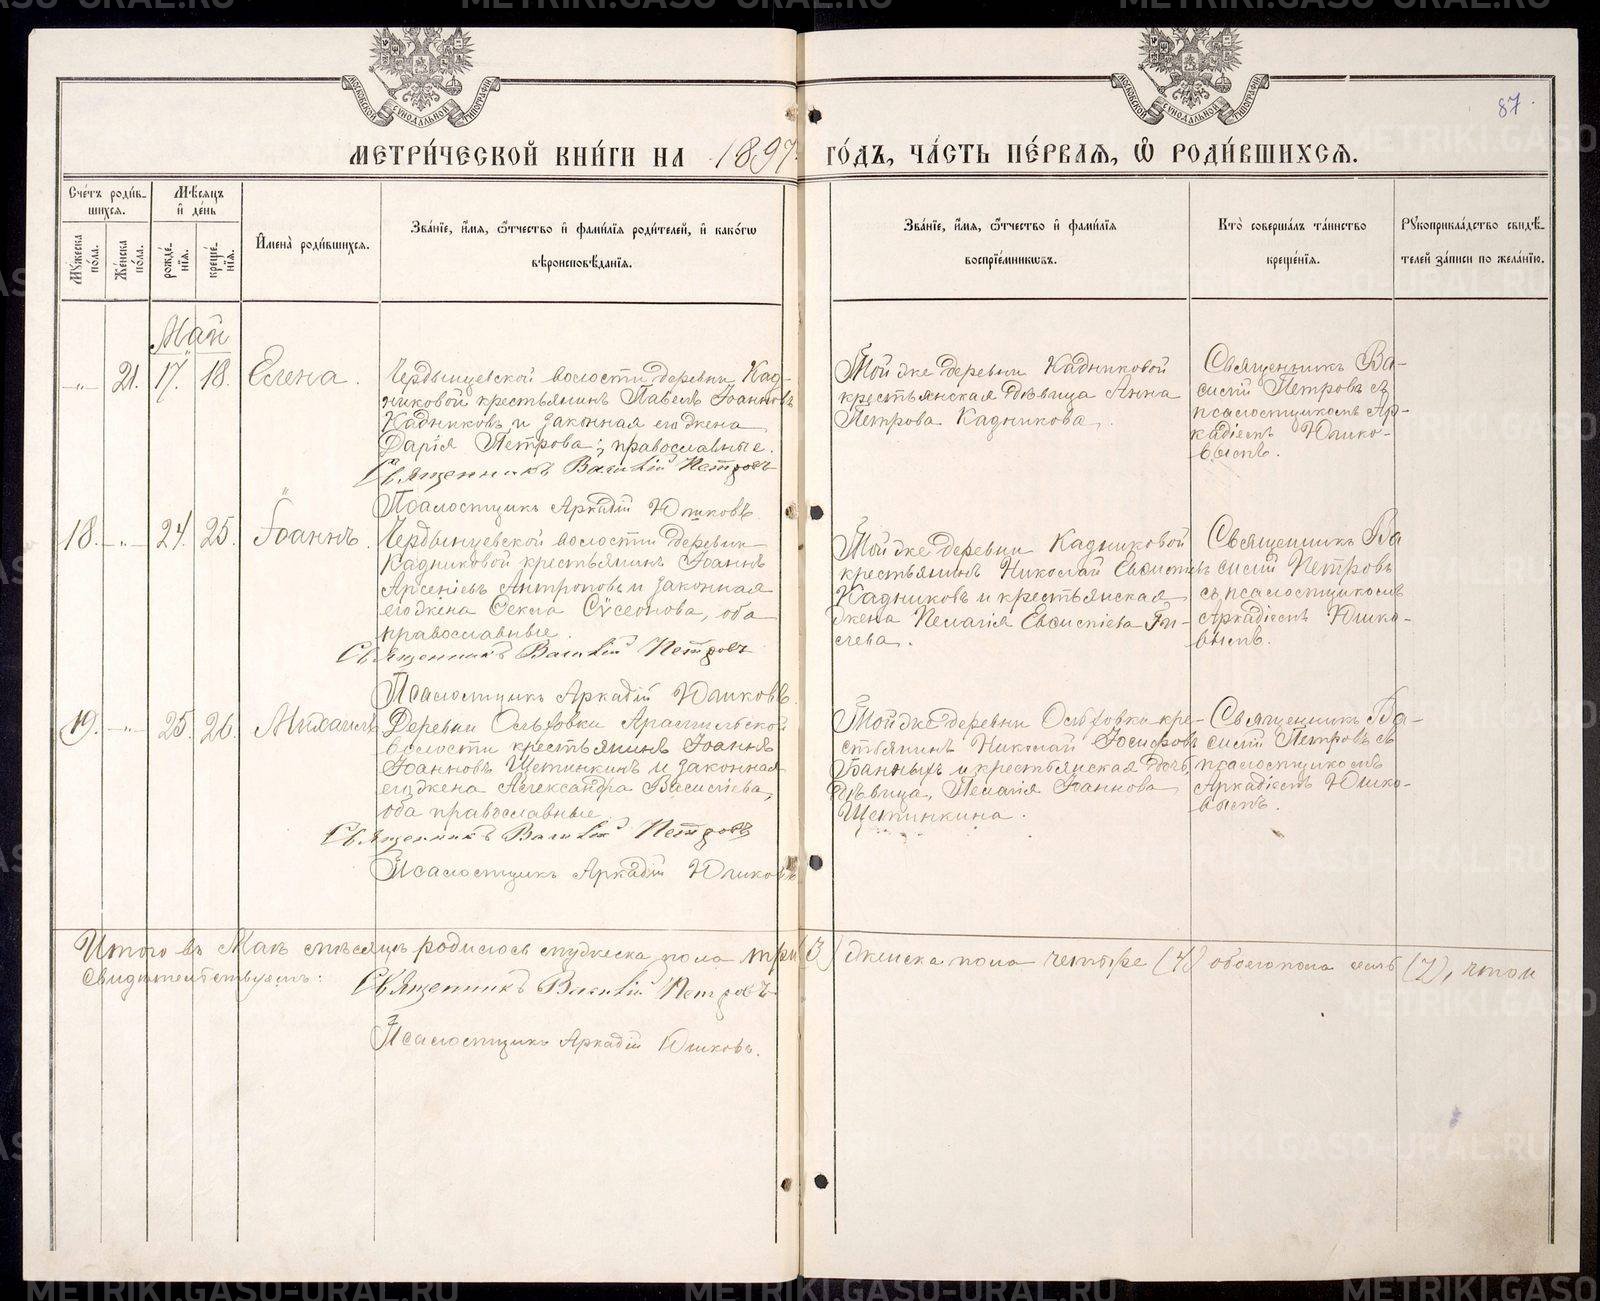 87.
МЕТРИ́ЧЕСКОЙ КНИ́ГИ НА 1897 ГО́ДЪ, ЧА́СТЬ ПЕ́РВАЯ, Ѡ РОДИ́ВШИХСЯ.
Сче́тъ роди́в-
шихся.
Му́жеска по́ла.
Же́нска по́ла.
Мѣ́сяцъ
и день
рожде́-
нїя.
креще́-
нїя.
Имена̀ роди́вшихся.
Зва́нїе, и́мя, ѻ́тчество и фами́лїя роди́телей, и како́гѡ
вѣроисповѣ́данїя.
Зва́нїе, и́мя, ѻ́тчество и фами́лїя
воспрїе́мникѡвъ.
Кто̀ соверша́лъ та́инство
креще́нїя.
Рукоприкла́дство свидѣ́-
телей за́писи по жела́нїю.
Май
21. 17. 18. Елена.
волости деревни Кад-
никовой крестьянинъ Павелъ Іоанновъ
Кадниковъ и законная его жена
Дарія Петрова; православные.
Священникъ Василій Петровъ
Псаломщикъ Аркадій Юшковъ
Той же деревни Кадниковой
крестьянская дѣвица Анна
Петрова Кадникова.
Священникъ Ва-
силій Петровъ съ
псаломщикомъ Ар-
кадіемъ Юшко-
вымъ.
18. 24. 25. Іоаннъ.
волости деревни
Кадниковой крестьянинъ Іоаннъ
Арсеніевъ Антроповъ и законная
его жена Ѳекла оба
православные.
Священникъ Василій Петровъ
Псаломщикъ Аркадій Юшковъ
Той же деревни Кадниковой
крестьянинъ Николай
Кадниковъ и крестьянская
жена Пелагія
Священникъ Ва
силій Петровъ
съ псаломщикомъ
Аркадіемъ Юшко-
вымъ.
19. 25. 26. Михаилъ
Деревни Ольховки Арамильской
волости крестьянинъ Іоаннъ
Іоанновъ Щетинкинъ и законная
его жена Александра Василіева,
оба православные
Священникъ Василій Петровъ
Псаломщикъ Аркадій Юшковъ
Той же деревни Ольховки кре-
стьянинъ Николай Іосифовъ
Банныхъ и крестьянская дочь,
дѣвица, Пелагія Іоаннова
Щетинкина.
Священникъ Ва-
силій Петровъ съ
псаломщикомъ
Аркадіемъ Юшко-
вымъ.
Итого въ Маѣ мѣсяцѣ родилось мужеска пола три (3) женска пола четыре (4) обоего пола семь (7), в томъ
свидѣтельствуемъ:
Священникъ Василій Петровъ
Псаломщикъ Аркадій Юшковъ.
METRIKI.GASO-URAL.RU